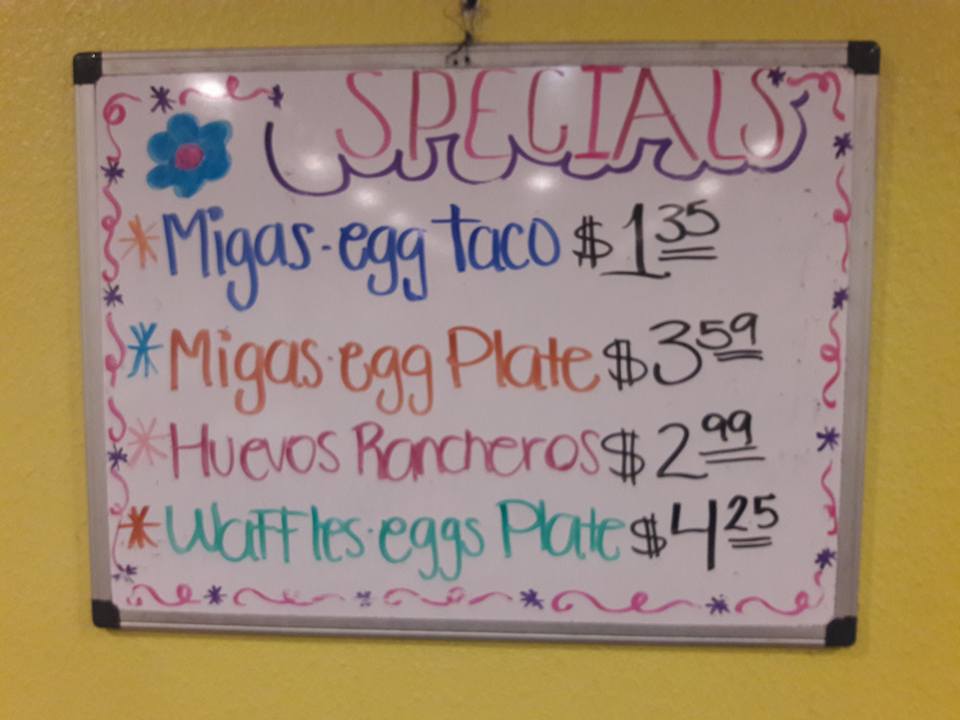 SPECIALS
Migas-egg taco $1 35
Migas-egg Plate $3 59
Huevos Rancheros $2 99
Waffles-eggs Plate $4 25